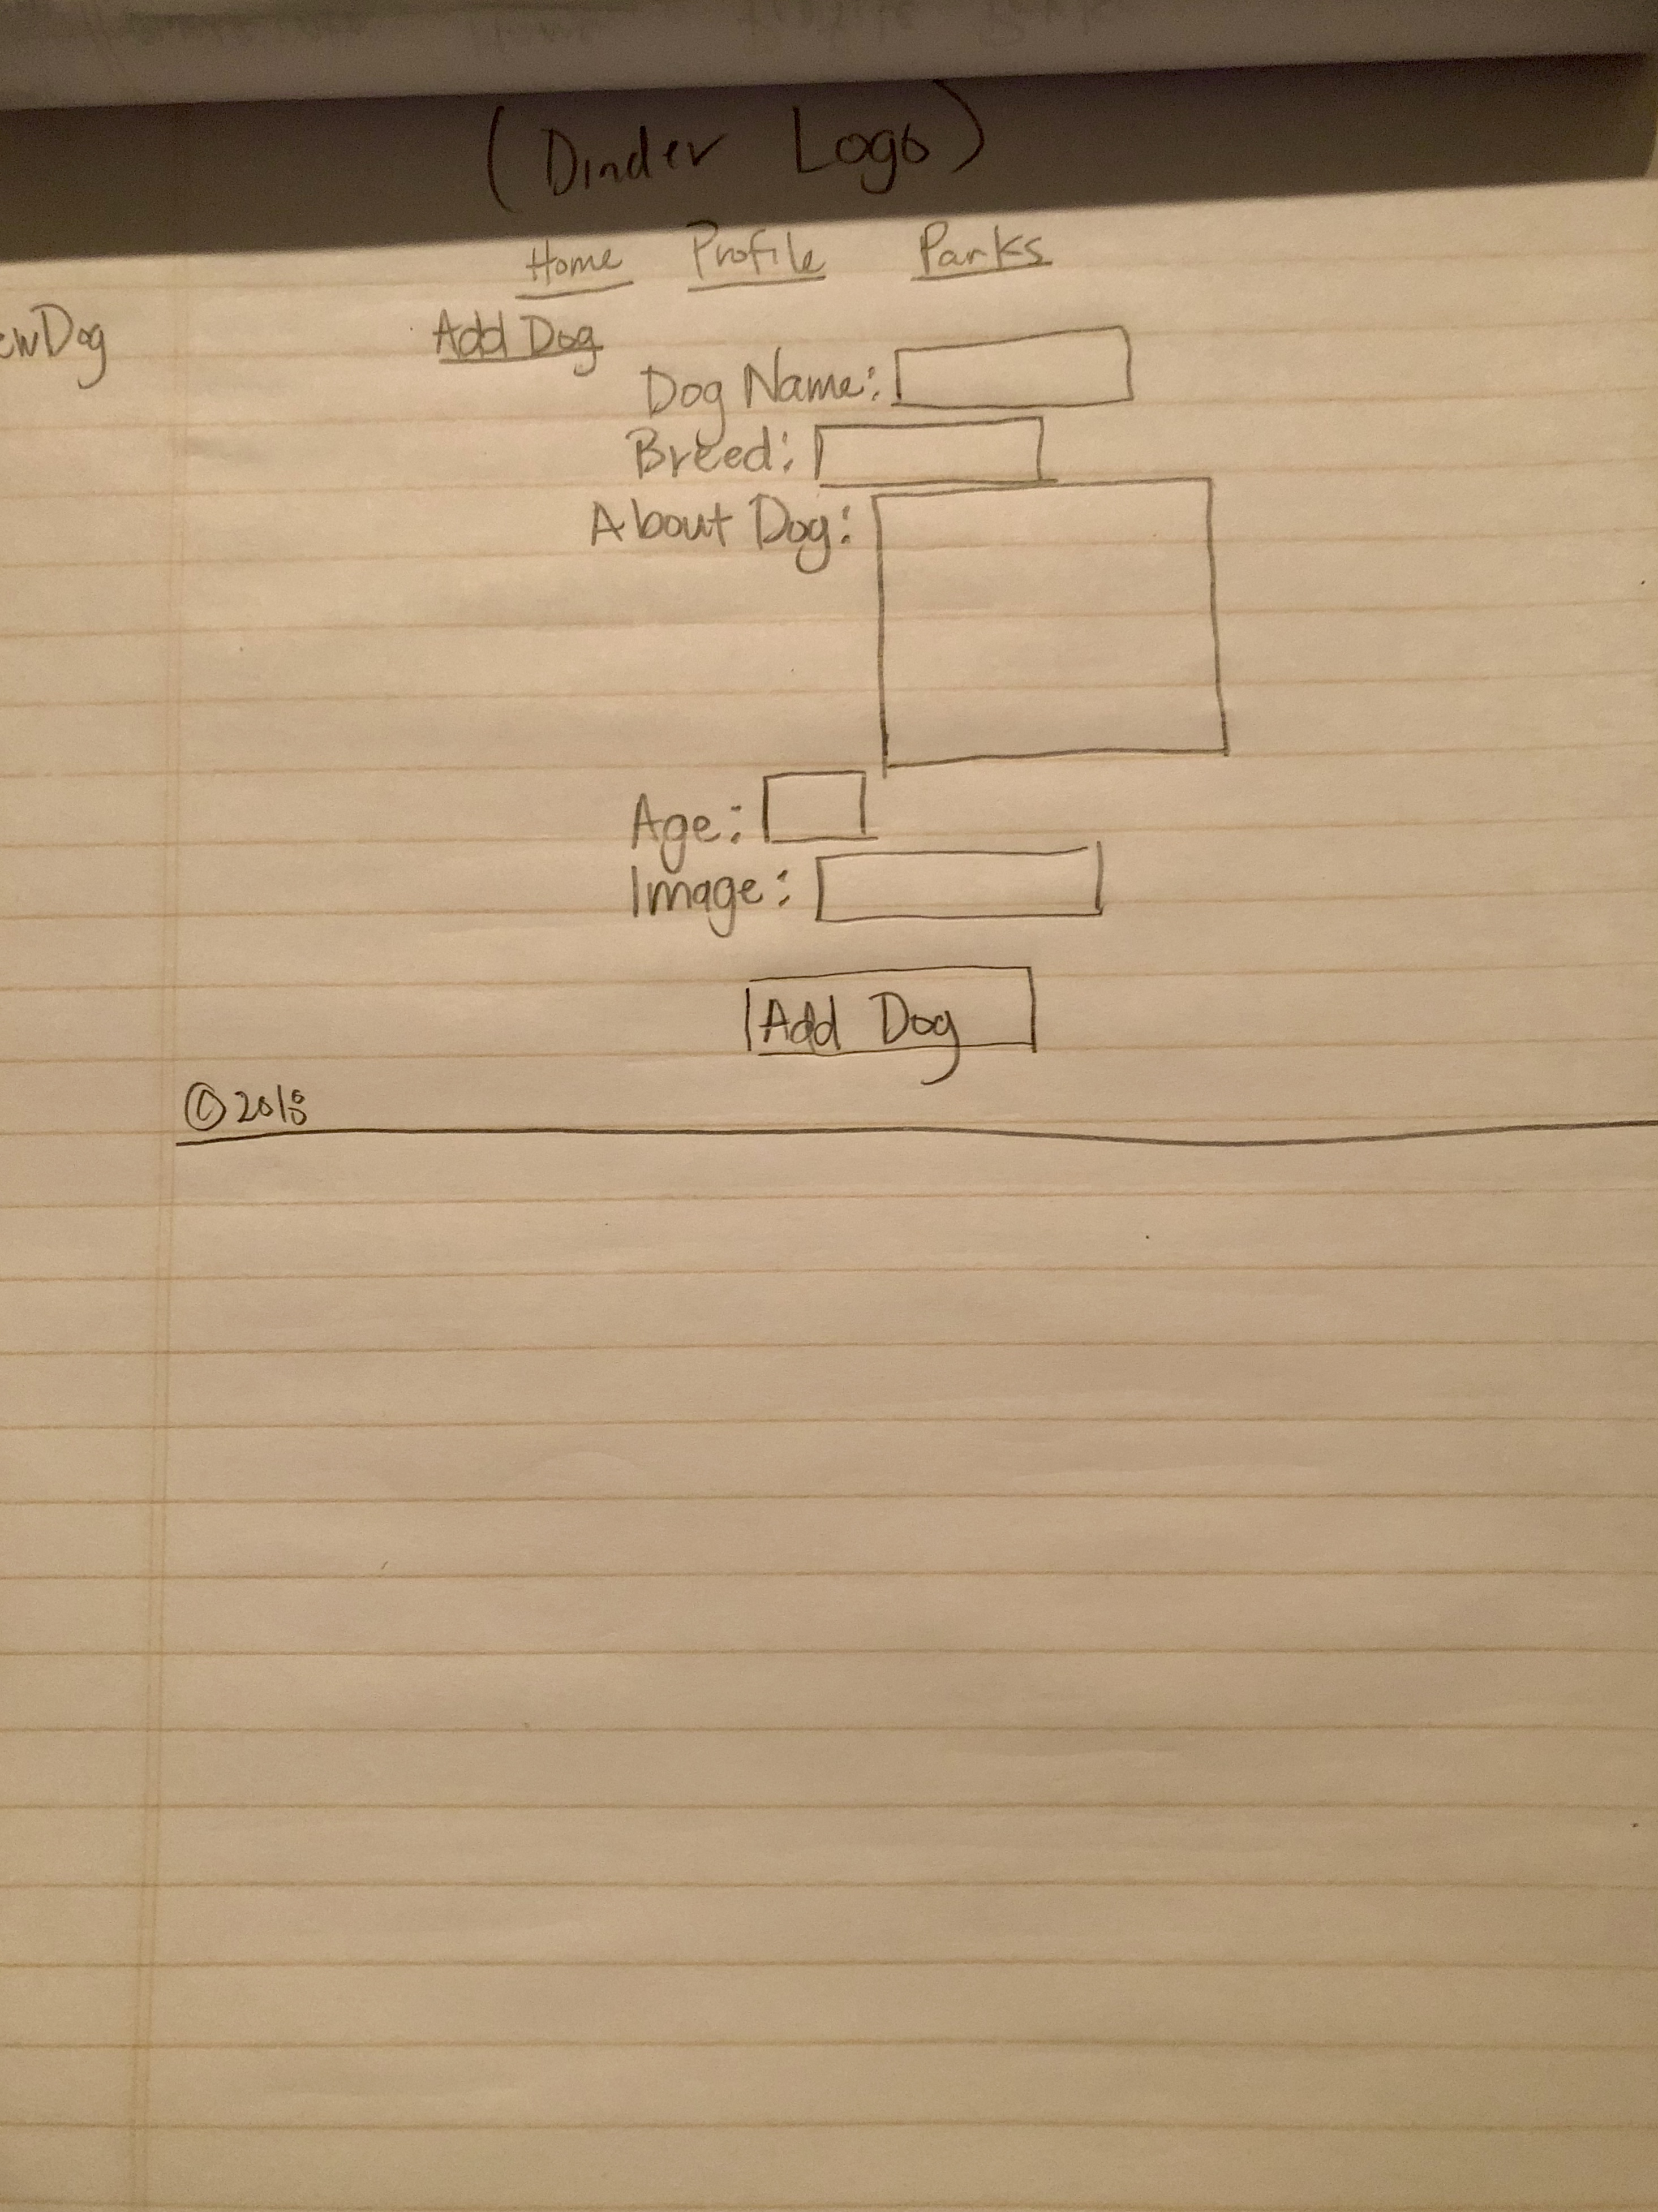 (Dinder Logo)
Home Profile Parks
Add Dog
Dog Name:
Breed:
About Dog:
Age:
Image:
Add Dog
©2018